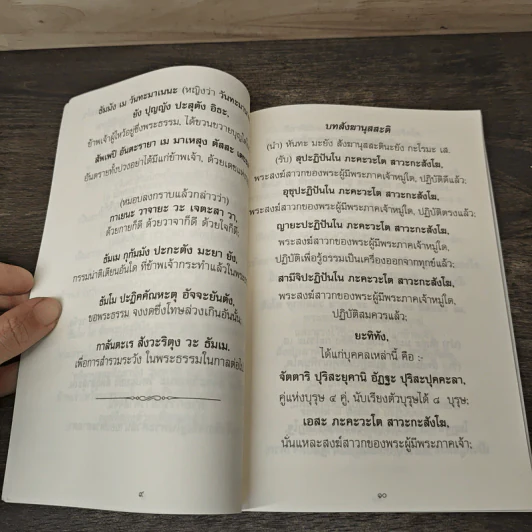 ธัมมัง เม วันทะมาเนนะ (หญิงว่า วันทะมา
ยัง ปุญญัง ปะสุตัง อิธะ,
ข้าพเจ้าผู้ไหว้อยู่ซึ่งพระธรรม, ได้ขวนขวายบุญใด
สัพเพปิ อันตะรายา เม มาเหสุง ตัสสะ เต
อันตรายทั้งปวงอย่าได้มีแก่ข้าพเจ้า, ด้วยเดช
(หมอบลงกราบแล้วกล่าวว่า)
กาเยนะ วาจายะ วะ เจตะสา วา,
ด้วยกายก็ดี ด้วยวาจาก็ดี ด้วยใจก็ดี;
ธัมเม กุกัมมัง ปะกะตัง มะยา ยัง,
กรรมน่าติเตียนอันใด ที่ข้าพเจ้ากระทำแล้วในพระ
ธัมโม ปะฏิคคัณหะตุ อัจจะยันตัง,
ขอพระธรรม จงงดซึ่งโทษล่วงเกินอันนั้น;
กาลันตะเร สังวะริตุง วะ ธัมเม.
เพื่อการสำรวมระวัง ในพระธรรมในกาลต่อไป
๙
บทสังฆานุสสะติ
(นำ) หันทะ มะยัง สังฆานุสสะตินะยัง กะโรมะ เส.
(รับ) สุปะฏิปันโน ภะคะวะโต สาวะกะสังโฆ,
พระสงฆ์สาวกของพระผู้มีพระภาคเจ้าหมู่ใด, ปฏิบัติดีแล้ว;
อุชุปะฏิปันโน ภะคะวะโต สาวะกะสังโฆ,
พระสงฆ์สาวกของพระผู้มีพระภาคเจ้าหมู่ใด, ปฏิบัติตรงแล้ว;
ญายะปะฏิปันโน ภะคะวะโต สาวะกะสังโฆ,
พระสงฆ์สาวกของพระผู้มีพระภาคเจ้าหมู่ใด,
ปฏิบัติเพื่อรู้ธรรมเป็นเครื่องออกจากทุกข์แล้ว;
สามีจิปะฏิปันโน ภะคะวะโต สาวะกะสังโฆ,
พระสงฆ์สาวกของพระผู้มีพระภาคเจ้าหมู่ใด,
ปฏิบัติสมควรแล้ว;
ยะทิทัง,
ได้แก่บุคคลเหล่านี้ คือ :-
จัตตาริ ปุริสะยุคานิ อัฏฐะ ปุริสะปุคคะลา,
คู่แห่งบุรุษ ๔ คู่, นับเรียงตัวบุรุษได้ ๘ บุรุษ;
เอสะ ภะคะวะโต สาวะกะสังโฆ,
นั่นแหละสงฆ์สาวกของพระผู้มีพระภาคเจ้า;
๑๐